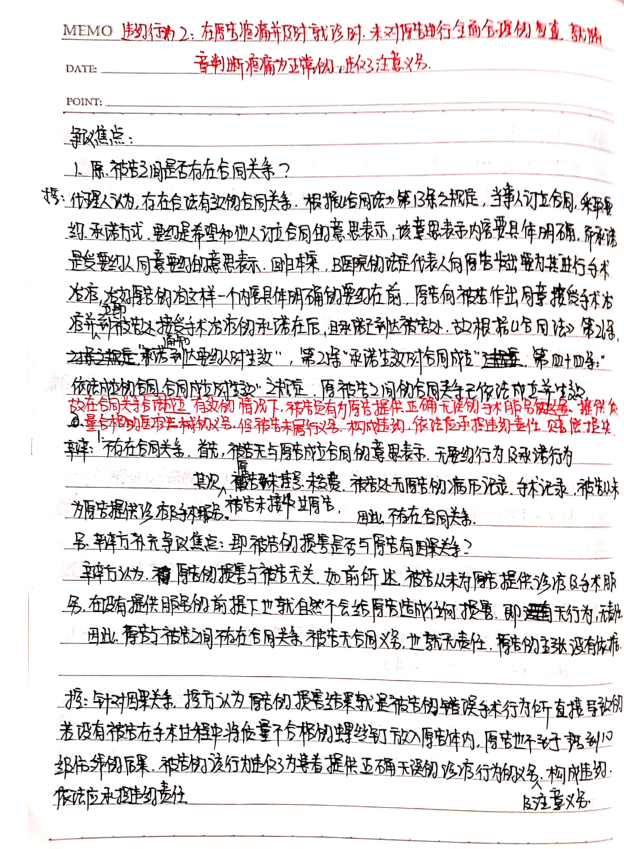 MEMO 违约行为2：在原告疼痛并及时就诊时，未对原告进行全面合理的检查，就随
DATE: 意判断疼痛为正常的，违约了注意义务。
POINT:
争议焦点：
1、原、被告之间是否存在合同关系？
控：代理人认为，存在合法有效的合同关系，根据《合同法》第13条之规定，当事人订立合同，采取要
约、承诺方式，要约是希望和他人订立合同的意思表示，该意思表示内容要具体明确，而承诺
是受要约人同意要约的意思表示。回归本案，
治疗，治好原告的 这样一个内容具体明确的要约在前，原告向被告作出同意接受手术治
疗并到被告处接受手术治疗的承诺在后，且承诺已到达被告处，故根据《合同法》第26条，
"承诺通知到达要约人时生效"，第25条"承诺生效时合同成立" 第四十四条："
依法成立的合同，合同成立时生效"之规定，原被告之间的合同关系已依法成立并生效。
故在合同关系合法成立、有效的情况下，被告负有为原告提供正确无误的手术服务 提供质
量合格的医疗器械的义务，但被告未履行义务，构成违约，依法应承担违约责任，赔偿损失
辩：1、不存在合同关系。首先，被告无与原告成立合同的意思表示，无要约行为及承诺行为
其次，原告未挂号、未缴费，被告处无原告的病历记录、手术记录，被告从未
为原告提供诊疗及手术服务。被告未接华立原告， 因此不存在合同关系。
另，辩方补充争议焦点：即被告的损害是否与原告有因果关系？
辩方认为，原告的损害与被告无关，如前所述，被告从未为原告提供诊疗及手术服
务，在没有提供服务的前提下也就自然不会给原告造成任何损害，即无行为，无责任
因此，原告与被告之间不存在合同关系，被告无合同义务，也就无责任，原告的主张没有依据。
控：针对因果关系，控方认为原告的损害结果就是被告的错误手术行为所直接导致的
若没有被告在手术过程中将质量不合格的螺丝钉放入原告体内，原告也不致于 到10
级伤残的后果，被告的该行为违约了为患者提供正确无误的诊疗行为的义务，构成违约，
依法应承担违约责任 及注意义务。